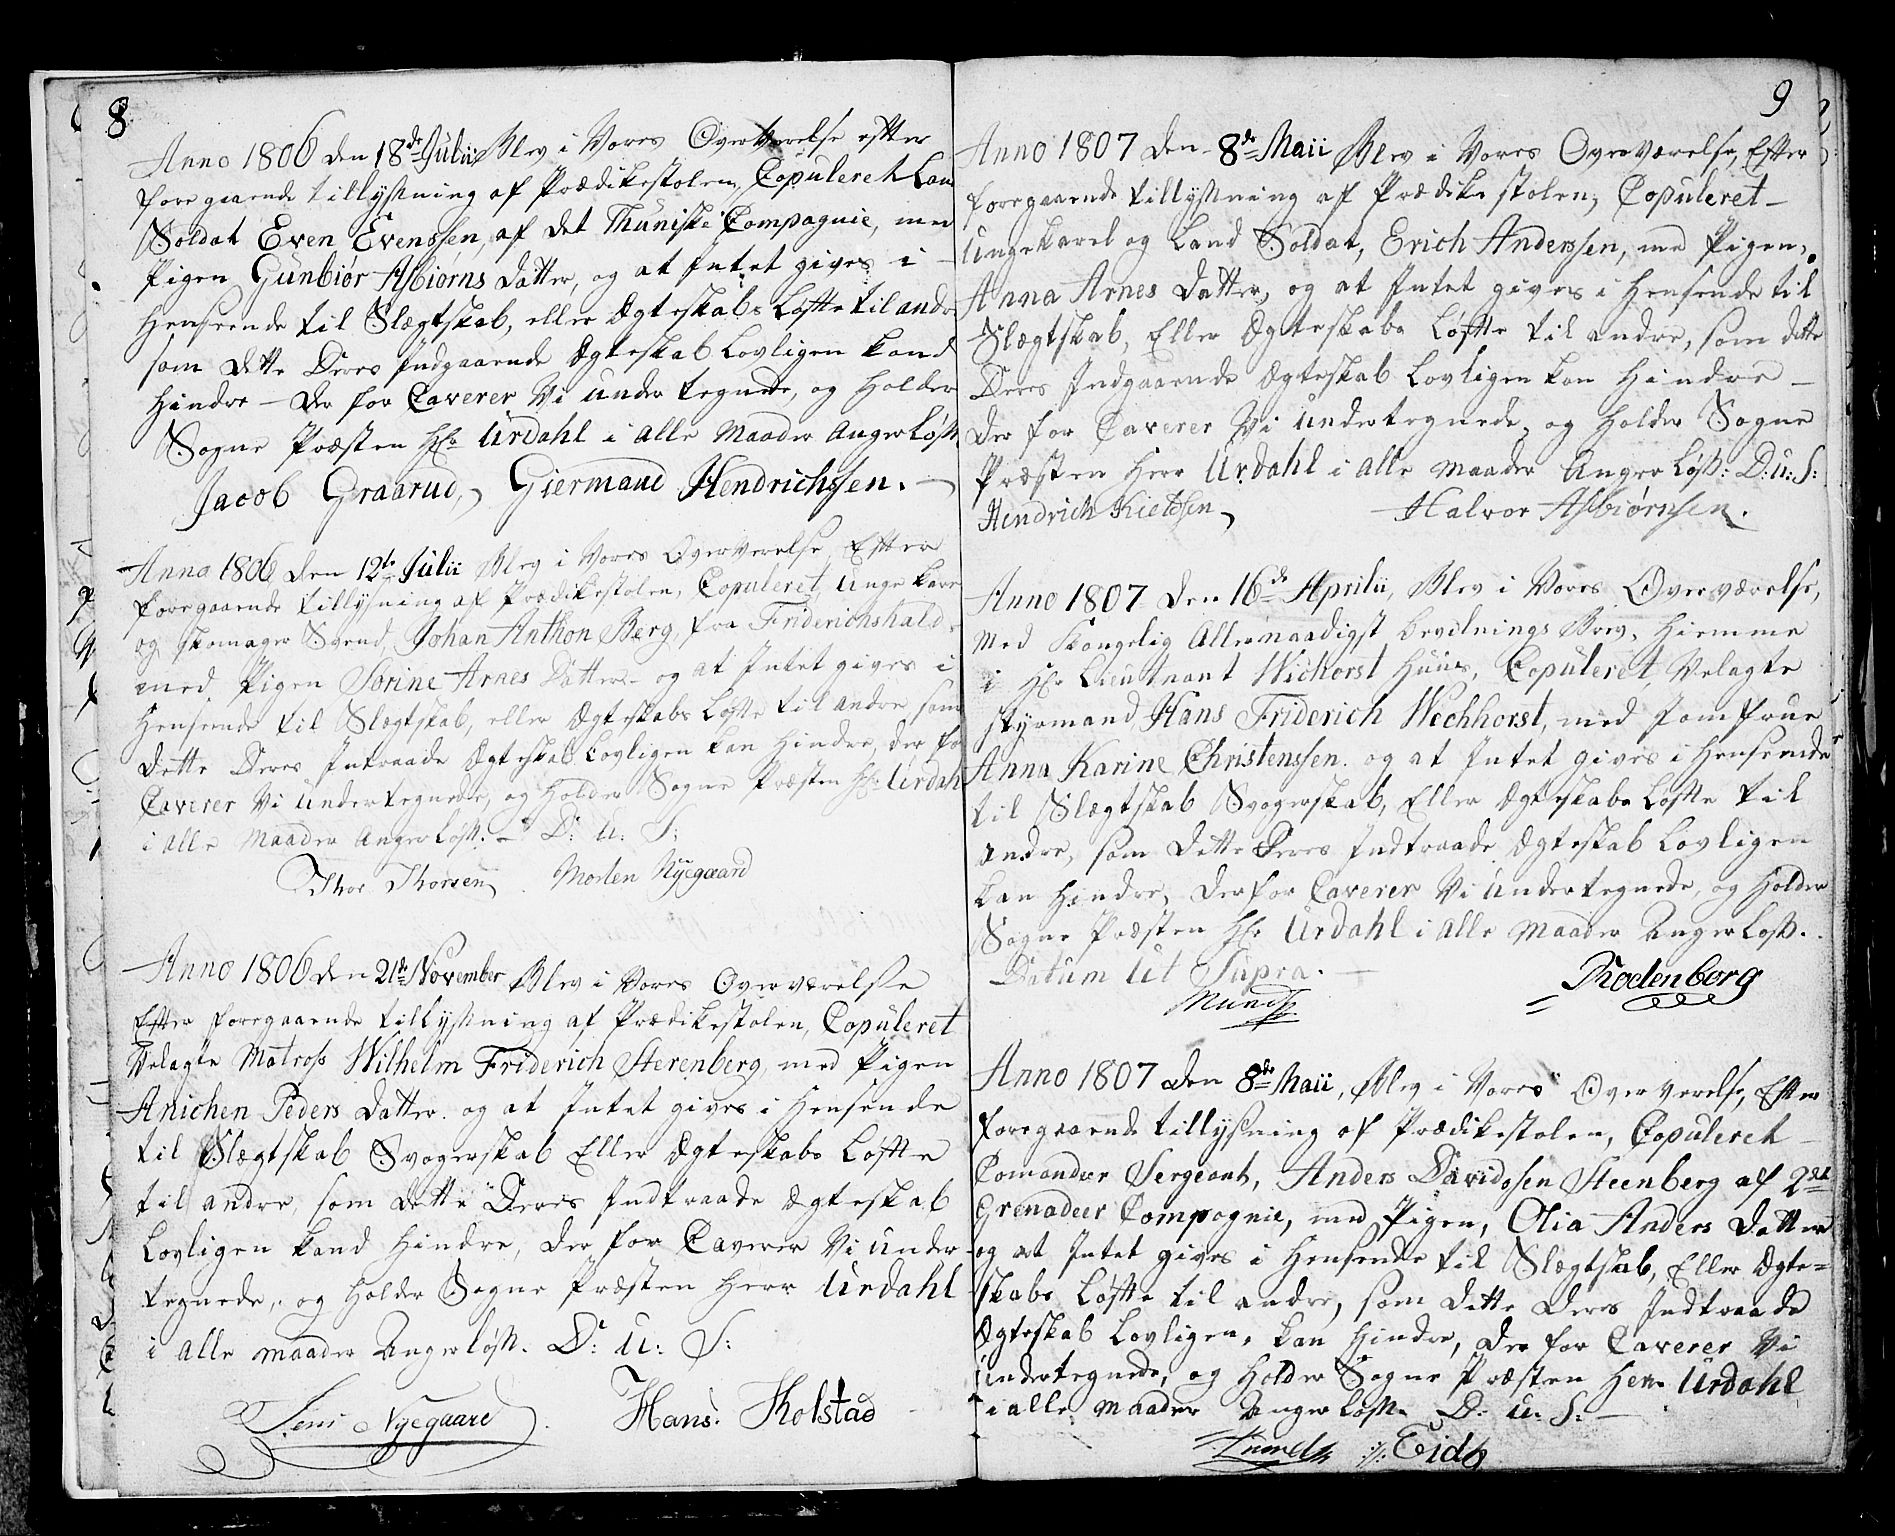 8
Anno 1806 den 18de Julii Blev i Vores Overværelse efter
foregaaende tillysning af Prædikestolen, Copuleret Lan
Soldat Even Evenssen, af det Thuniske Compagnie, med
Pigen Gunbiør Asbiørns Datter, og at Intet gives i
Henseende til Slægtskab, eller Ægteskabs Løfte til andre
som dette Deres Indgaaende Ægteskab Lovligen kand
Hindre – Der for Caverer Vi under tegnede, og holder
Sogne Præsten Hr. Urdahl i alle Maader Angerløss.
Jacob Graarud, Giermund Hendrichssen.
Anno 1806 den 12te Julii Blev i Vores Oververelse, Efter
foregaaende tillysning af Prædikestolen, Copuleret, Unge kare
og Skomager Svend, Johan Anthon Berg, fra Friderichshald
med Pigen Sørine Arnes Datter – og at Intet gives i
Henseende til Slægtskab, eller Ægteskabs Løfte til andre, som
dette Deres Intraade Ægteskab Lovligen kan Hindre, der for
Caverer Vi undertegnede, og holder Sogne Præsten Hr. Urdah
i alle Maader Angerløss. – D: U: S:
Thor Thorsen Morten Nyegaard
Anno 1806 den 21de November Blev i Vores Overværelse
Efter foregaaende tillysning af Prædikestolen, Copuleret
Velagte Matross Wilhelm Friderich Sterenberg, med Pigen
Anichen Peders Datter. og at Intet gives i Hensende
til Slægtskab Svogerskab Eller Ægteskabs Løfte
til andre, som dette Deres Indtraade Ægteskab
Lovligen kand Hindre, der for Caverer Vi under
tegnede, og holder Sogne Præsten Herr Urdahl
i alle maader Angerløss. D: U: S:
Jens Nyegaard. Hans. Kolstad
9
Anno 1807 den 8de Maii Blev i Vores Overværelse, Efter
foregaaende tillysning af Prædike stolen, Copuleret –
Ungekarl og Land Soldat, Erich Anderssen, med Pigen,
Anna Arnes Datter, og at Intet gives i Hensende til
Slægtskab, Eller Ægteskabs Løfte til andre, som dette
Deres Indgaaende Ægteskab Lovligen kan Hindre –
Der for Caverer Vi undertegnede, og holder Sogne
Præsten Herr Urdahl i alle maader Anger løss: D: U: S:
Hendrich Halvor Asbiørnsen.
Anno 1807 den 16de Aprilii, Blev i Vores Overværelse,
Med Kongelig Allernaadigst bevilnings Brev, Hiemme
i Hr. Lieutnant Wichorst Huus, Copuleret, Velagte
Styrmand, Hans Friderich Wechhorst, med Jomfrue
Anna Karine Christenssen. og at Intet gives i Hensende
til Slægtskab Svogerskab, Eller Ægteskabs Løfte til
andre, som dette Deres Indtraade Ægteskab Lovligen
kan Hindre, Derfor Caverer Vi Undertegnede, og holder
Sogne Præsten Hr. Urdahl i alle maader Angerløss.
Datum Ut Supra. –
Rodenborg
Anno 1807 den 8de Maii, Blev i Vores Oververelse, Efter
foregaaende tillysning af Prædikestolen, Copuleret
Comandeer Sergeant, Anders Davidssen Steenberg af 2det
Grenadeer Compagnie, med Pigen, Olia Anders Datter
og at Intet gives i Hensende til Slægtskab, Eller Ægte=
skabs Løfte til andre, som dette Deres Indtraade
Ægteskab Lovligen, kan Hindre, der for Caverer Vi
Undertegnede, og Holder Sogne Præsten Herr Urdahl
i alle maader Angerløss. D: U: S: –